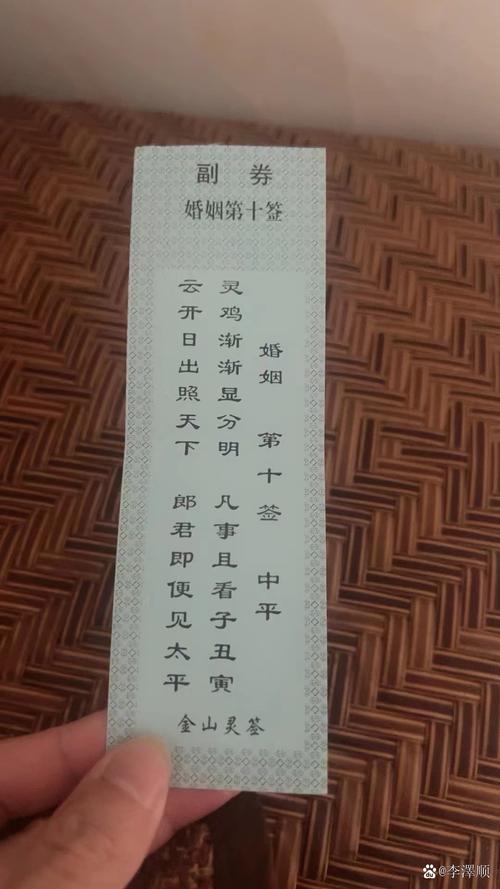 副 券
婚姻第十签
婚姻 第十签 中平
灵鸡渐渐显分明 凡事且看子丑寅
云开日出照天下 郎君即便见太平
金山灵签
@李澤顺